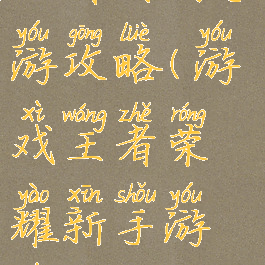 yóu gōng lüè yóu
游攻略(游
xì wáng zhě róng
戏王者荣
yào xīn shǒu yóu
耀新手游